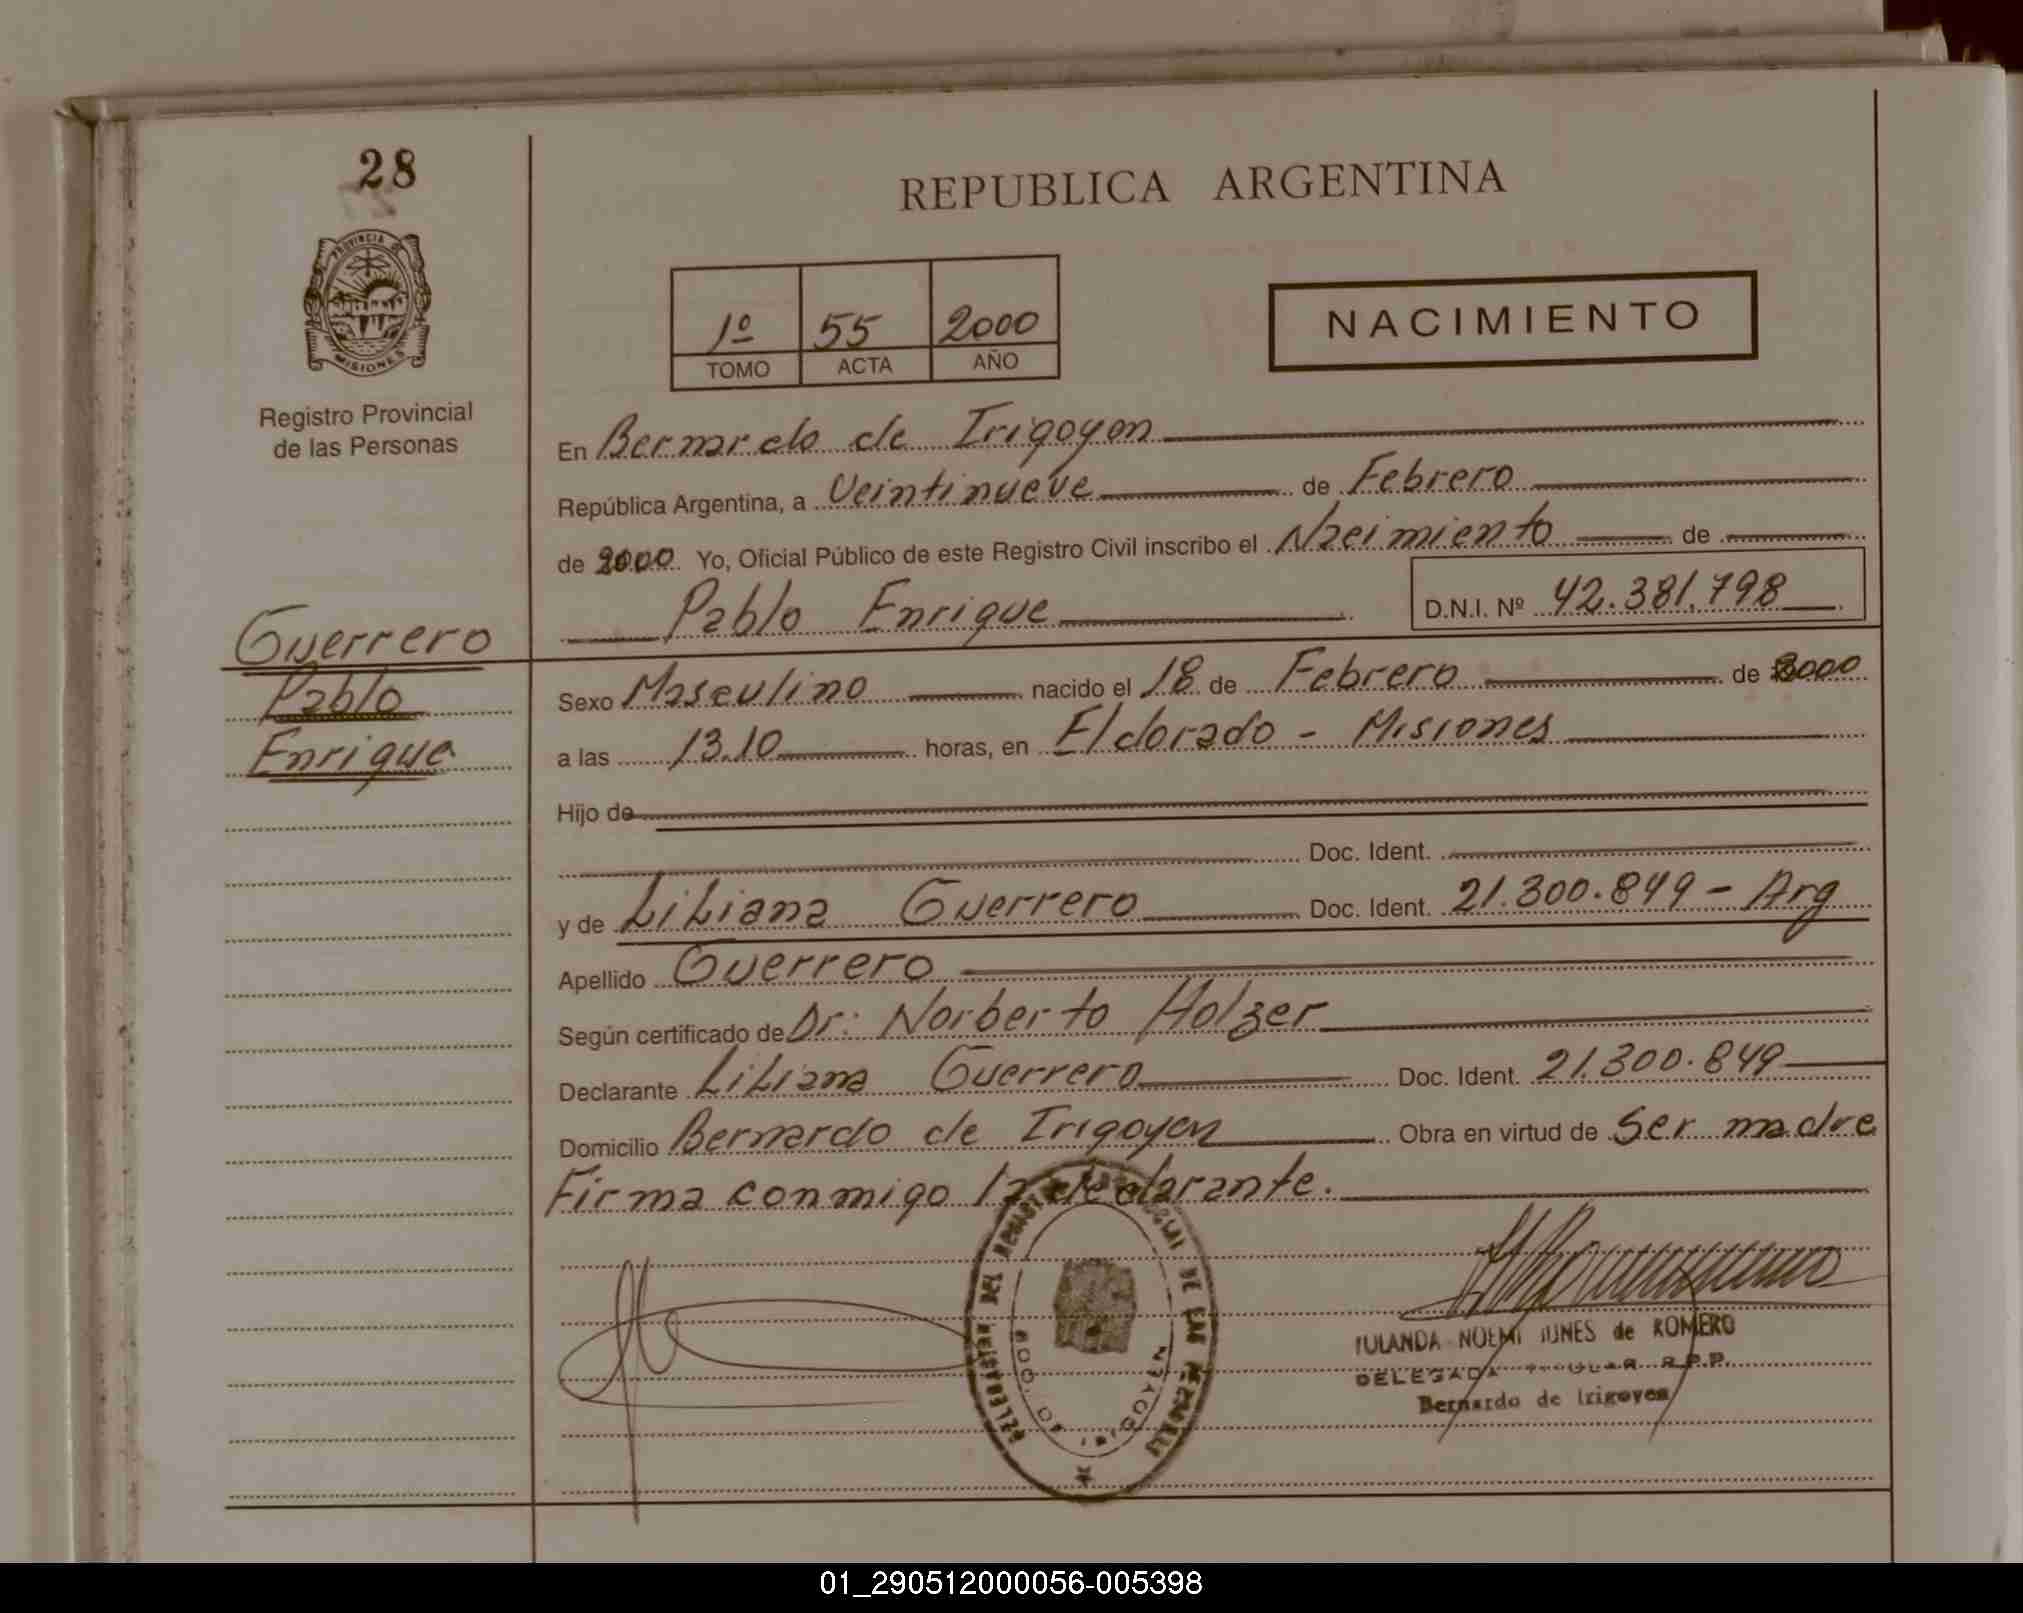 28
PROVINCIA DE
MISIONES
Registro Provincial
de las Personas
Guerrero
Pablo
Enrique
REPUBLICA ARGENTINA
1º 55 2000
TOMO ACTA AÑO
NACIMIENTO
En Bernardo de Irigoyen
República Argentina, a Veintinueve de Febrero
de 2000 Yo, Oficial Público de este Registro Civil inscribo el Nacimiento de
Pablo Enrique D.N.I. Nº 42.381.798
Sexo Masculino nacido el 18 de Febrero de 2000
a las 13.10 horas, en Eldorado - Misiones
Hijo de
Doc. Ident.
y de Liliana Guerrero Doc. Ident. 21.300.849 - Arg
Apellido Guerrero
Según certificado de Dr: Norberto Holzer
Declarante Liliana Guerrero Doc. Ident. 21.300.849
Domicilio Bernardo de Irigoyen Obra en virtud de Ser madre
Firma conmigo la declarante.
NOEMI de ROMERO
DELEGADA TITULAR R.P.P.
Bernardo de Irigoyen
01_290512000056-005398